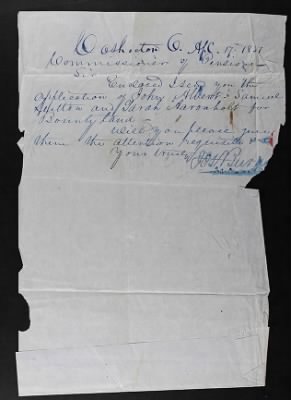 Coshocton O. Apl. 17. 1851
Commissioner of Pensions
Sir
Enclosed I send you the
application of John Albert & Samuel
and Sarah for
Bounty Land -
Will you please give
them the attention requisite &c
Yours truly